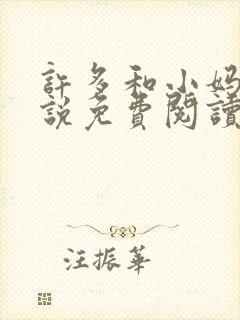 許多和小妈
說免費閱讀
汪振華